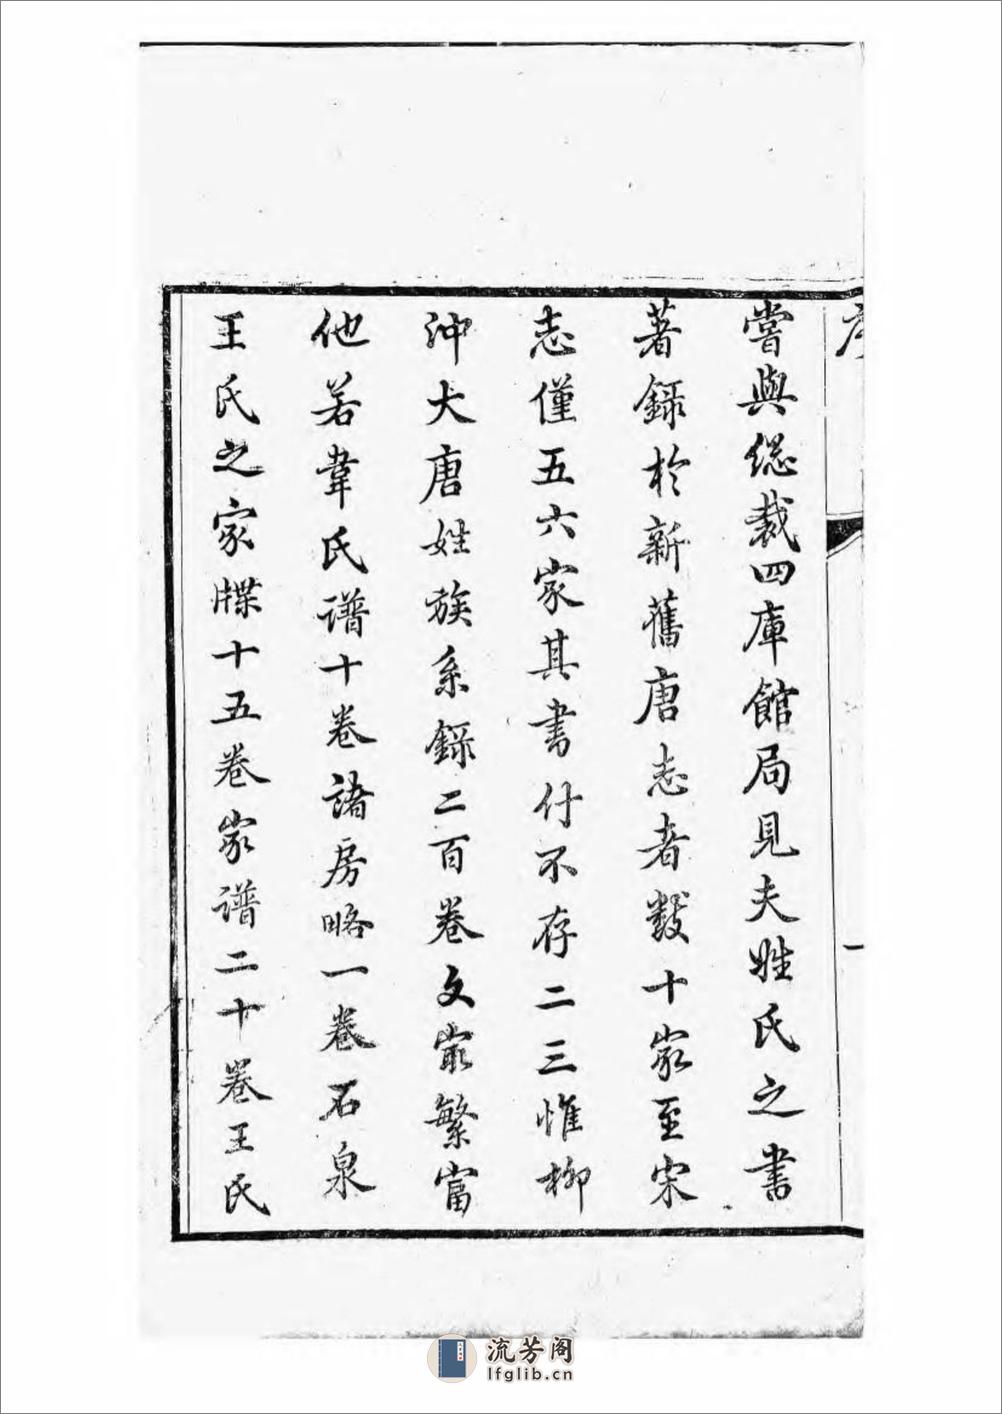 序
一
嘗與総裁四庫館局見夫姓氏之書
著錄於新舊唐志者數十家至宋
志僅五六家其書付不存二三惟柳
沖大唐姓族系錄二百卷文冣繁富
他若韋氏譜十卷諸房略一卷石泉
王氏之家牒十五卷家譜二十卷王氏
流芳阁
lfglib.cn